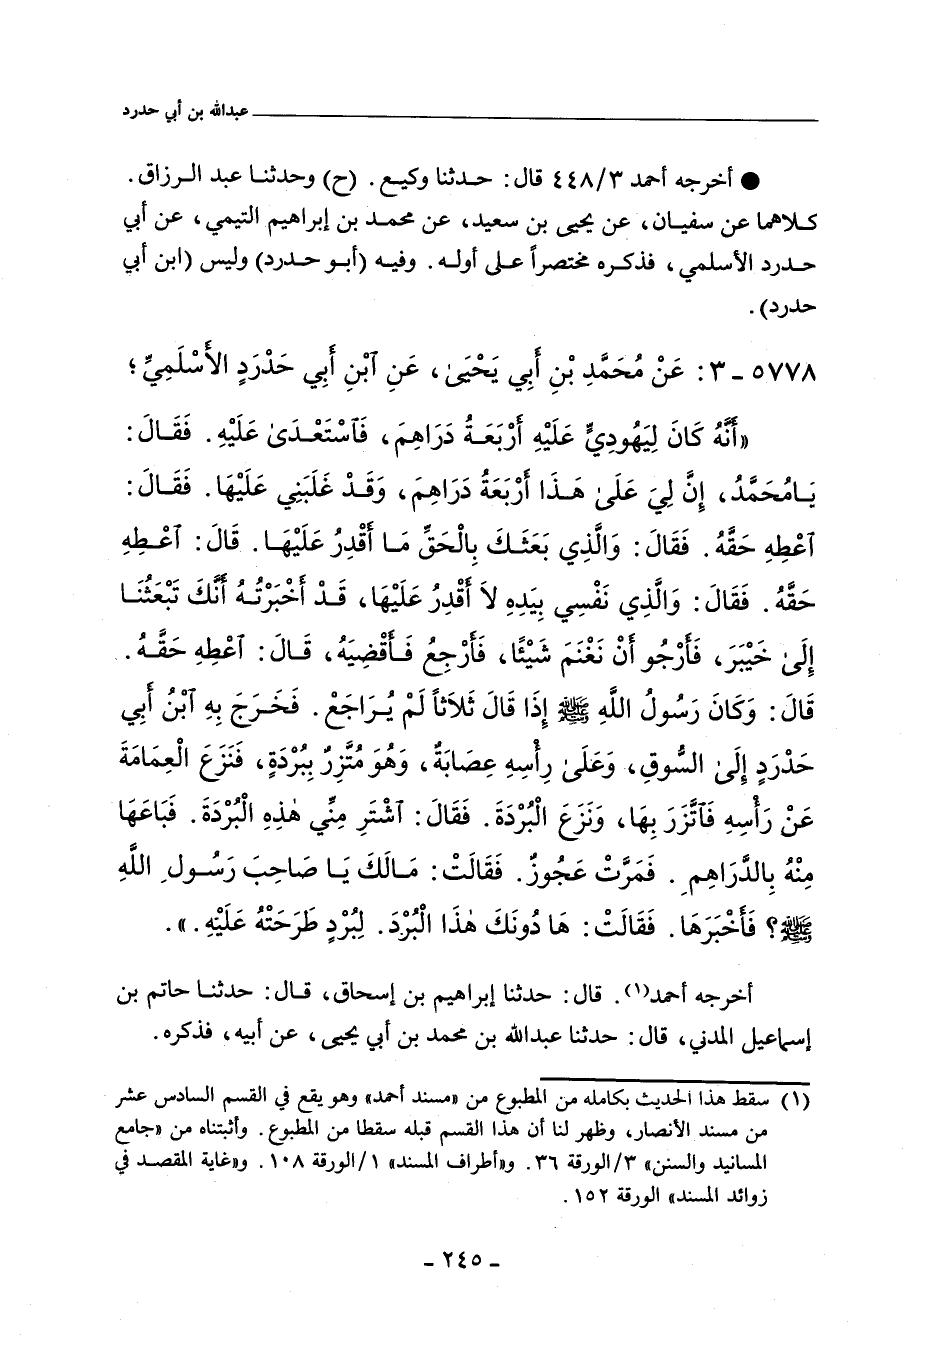 عبدالله بن أبي حدرد
● أخرجه أحمد ٤٤٨/٣ قال: حـدثنا وكيـع. (ح) وحدثنـا عبد الـرزاق.
كـلاهمـا عن سفيـان، عن يحيى بن سعيد، عن محمـد بن إبراهيم التيمي، عن أبي
حـدرد الأسلمي، فذكـره مختصراً عـلى أولـه. وفيـه (أبـو حـدرد) وليس (ابن أبي
حدرد).
٥٧٧٨ ـ ٣: عَنْ مُحَمَّدِ بْنِ أَبِي يَحْيَىٰ، عَنِ ٱبْنِ أَبِي حَدْرَدٍ الأَسْلَمِيِّ؛
«أَنَّهُ كَانَ لِيَهُودِيٍّ عَلَيْهِ أَرْبَعَـةُ دَرَاهِمَ، فَٱسْتَعْـدَىٰ عَلَيْهِ. فَقَـالَ:
يَـامُحَمَّدُ، إِنَّ لِيَ عَلَىٰ هَـذَا أَرْبَعَةُ دَرَاهِمَ، وَقَـدْ غَلَبَنِي عَلَيْهَا. فَقَـالَ:
ٱعْطِهِ حَقَّهُ. فَقَالَ: وَالَّذِي بَعَثَـكَ بِالْحَقِّ مَـا أَقْدِرُ عَلَيْهَـا. قَالَ: ٱعْـطِهِ
حَقَّهُ. فَقَالَ: وَالَّذِي نَفْسِي بِيَدِهِ لاَ أَقْدِرُ عَلَيْهَا، قَـدْ أَخْبَرْتُـهُ أَنَّكَ تَبْعَثُنَـا
إِلَىٰ خَيْبَرَ، فَأَرْجُو أَنْ نَغْنَمَ شَيْئًا، فَأَرْجِعُ فَـأَقْضِيَهُ، قَـالَ: ٱعْطِهِ حَقَّـهُ.
قَالَ: وَكَانَ رَسُولُ اللَّهِ ﷺ إِذَا قَالَ ثَلاَثاً لَمْ يُـرَاجَعْ. فَخَـرَجَ بِهِ ٱبْنُ أَبِي
حَدْرَدٍ إِلَىٰ السُّوقِ، وَعَلَىٰ رِأْسِهِ عِصَابَةٌ، وَهُوَ مُتَّزِرٌ بِبُرْدَةٍ، فَنَزَعَ الْعِمَامَةَ
عَنْ رَأْسِهِ فَٱتَّزَرَ بِهَا، وَنَزَعَ الْبُرْدَةَ. فَقَالَ: ٱشْتَرِ مِنِّي هٰذِهِ الْبُرْدَةَ. فَبَاعَهَا
مِنْهُ بِالدَّرَاهِمِ. فَمَرَّتْ عَجُوزٌ. فَقَالَتْ: مَـالَكَ يَـا صَاحِبَ رَسُـولِ اللَّهِ
ﷺ؟ فَأَخْبَرَهَا. فَقَالَتْ: هَا دُونَكَ هٰذَا الْبُرْدَ. لِبُرْدٍ طَرَحَتْهُ عَلَيْهِ.».
أخرجه أحمد(١). قال: حدثنا إبراهيم بن إسحاق، قـال: حدثنـا حاتم بن
إسماعيل المدني، قال: حدثنا عبدالله بن محمد بن أبي يحيى، عن أبيه، فذكره.
(١) سقط هذا الحديث بكامله من المطبوع من «مسند أحمد» وهو يقع في القسم السادس عشر
من مسند الأنصار، وظهر لنا أن هذا القسم قبله سقطا من المطبوع. وأثبتناه من «جامع
المسانيد والسنن» ٣/الورقة ٣٦. و«أطراف المسند» ١/الورقة ١٠٨. و«غاية المقصـد في
زوائد المسند» الورقة ١٥٢.
ـ ٢٤٥ ـ